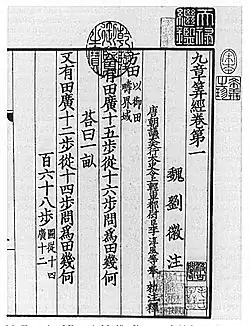 天祿繼鑑
九章筭經卷第一
魏劉徽注
唐朝議大夫行太史令上輕車都尉臣李淳風等奉 敕注釋
方田以御田
疇界域
有田廣十五步從十六步問爲田幾何
荅曰一畝
又有田廣十二步從十四步問爲田幾何
百六十八步圖從十四
廣十二